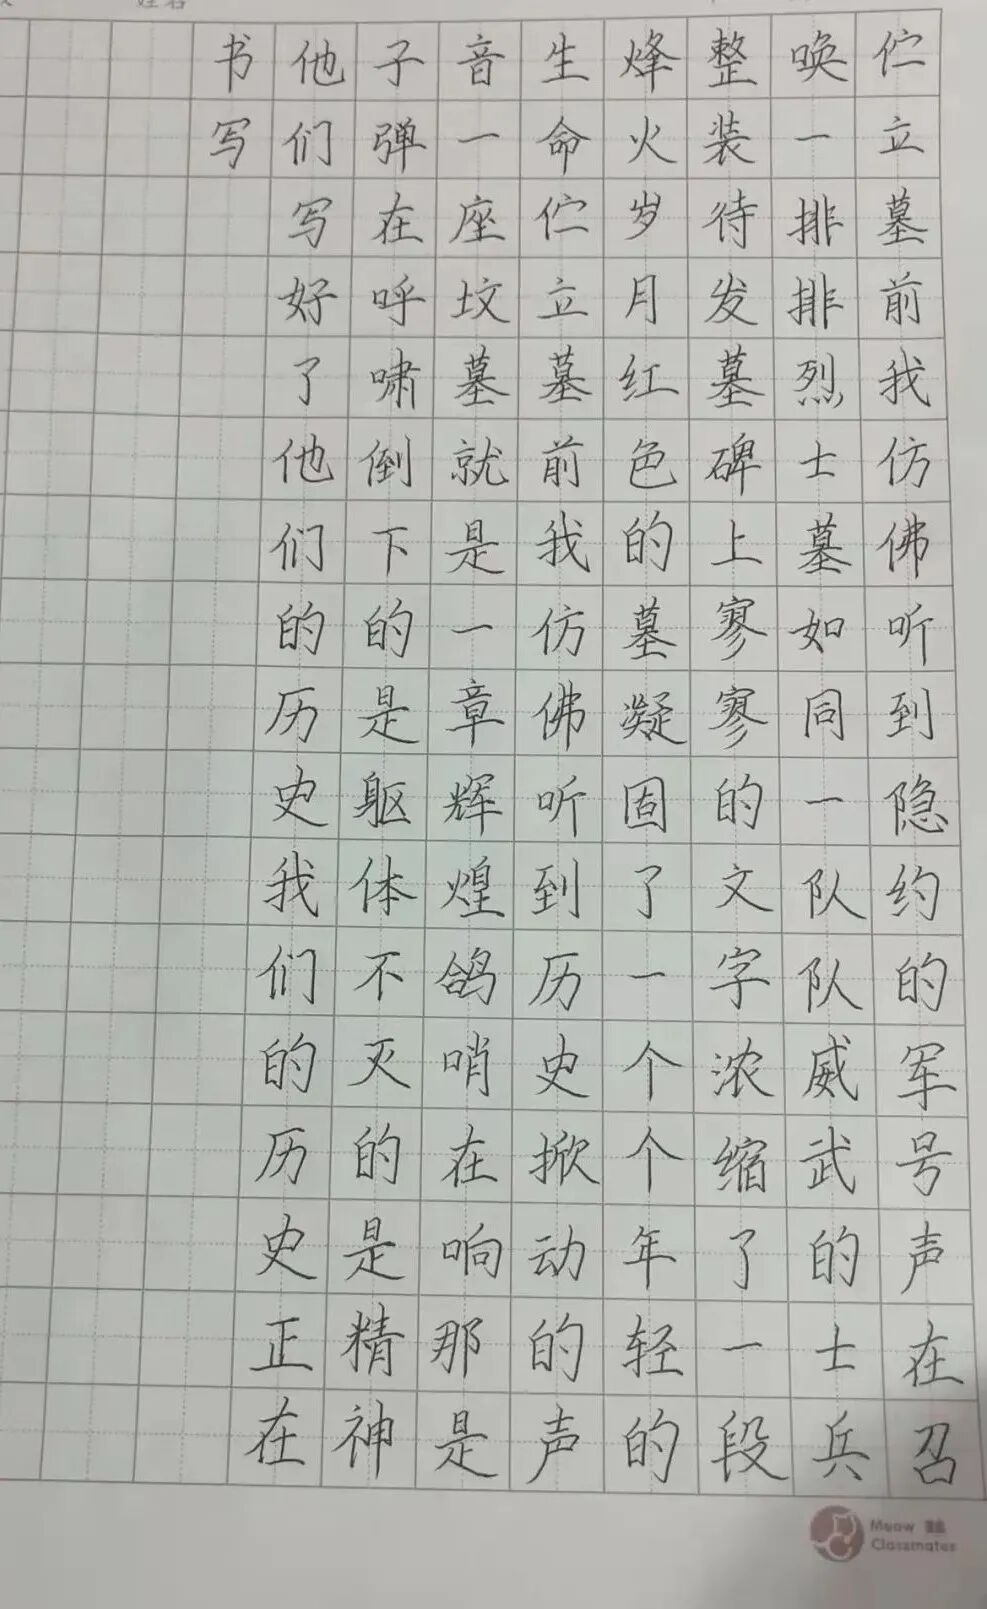 伫立墓前我仿佛听到隐约的军号声在召
唤一排排烈士墓如同一队队威武的士兵
整装待发墓碑上寥寥的文字浓缩了一段
烽火岁月红色的墓凝固了一个个年轻的
生命伫立墓前我仿佛听到历史掀动的声
音一座坟墓就是一章辉煌鸽哨在响那是
子弹在呼啸倒下的是躯体不灭的是精神
他们写好了他们的历史我们的历史正在
书写
Meow
Classmates